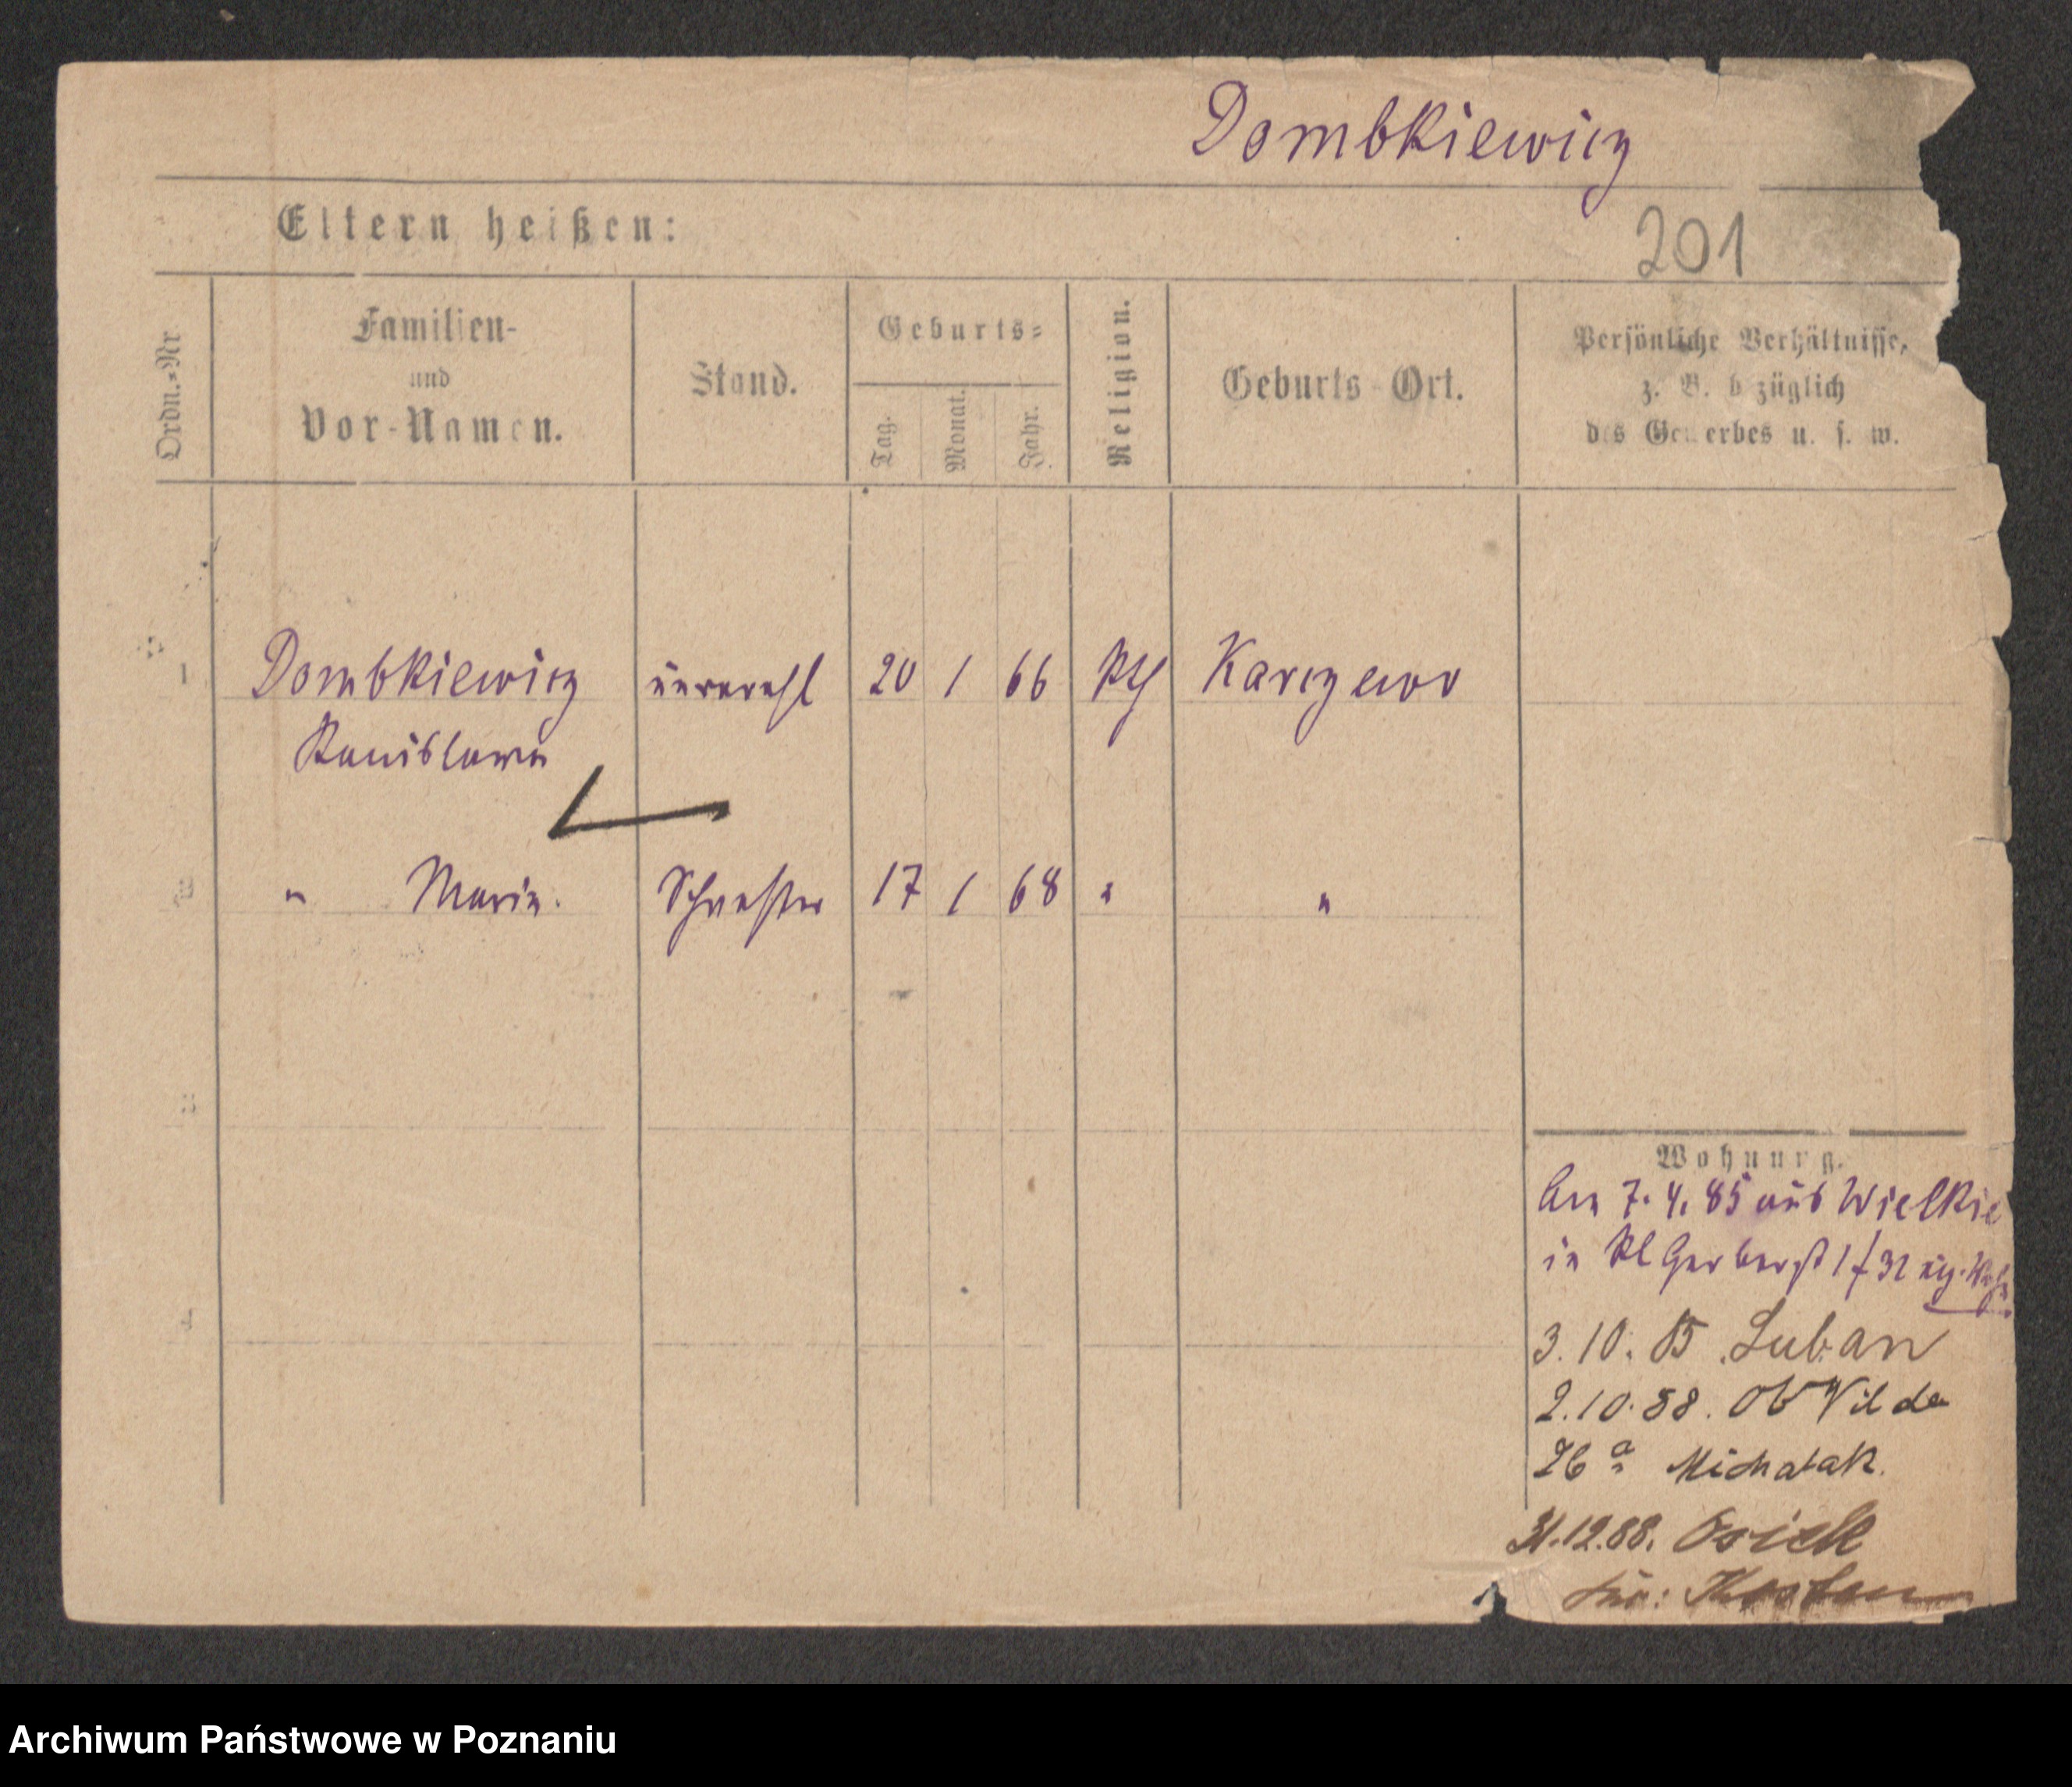 Dombkiewicz
201
Eltern heißen:
Ordn.=Nr
Familien-
und
Vor-Namen.
Stand.
Geburts=
Tag.
Monat.
Jahr.
Religion.
Geburts Ort.
Persönliche Verhältnisse,
z. B. bezüglich
des Gewerbes u. s. w.
1 Dombkiewicz unverehl 20 1 66 kth Karczewo
Stanislawa
2 " Maria. Schwester 17 1 68 " "
3
4
Wohnung.
An 7. 4. 85 aus Wielkie
in Kl Gerberst 1/ 31
3. 10. 85 Luban
2. 10. 88. Ob Wilda
26 a Michalak.
31.12.88. Osiek
Kosten
Archiwum Państwowe w Poznaniu